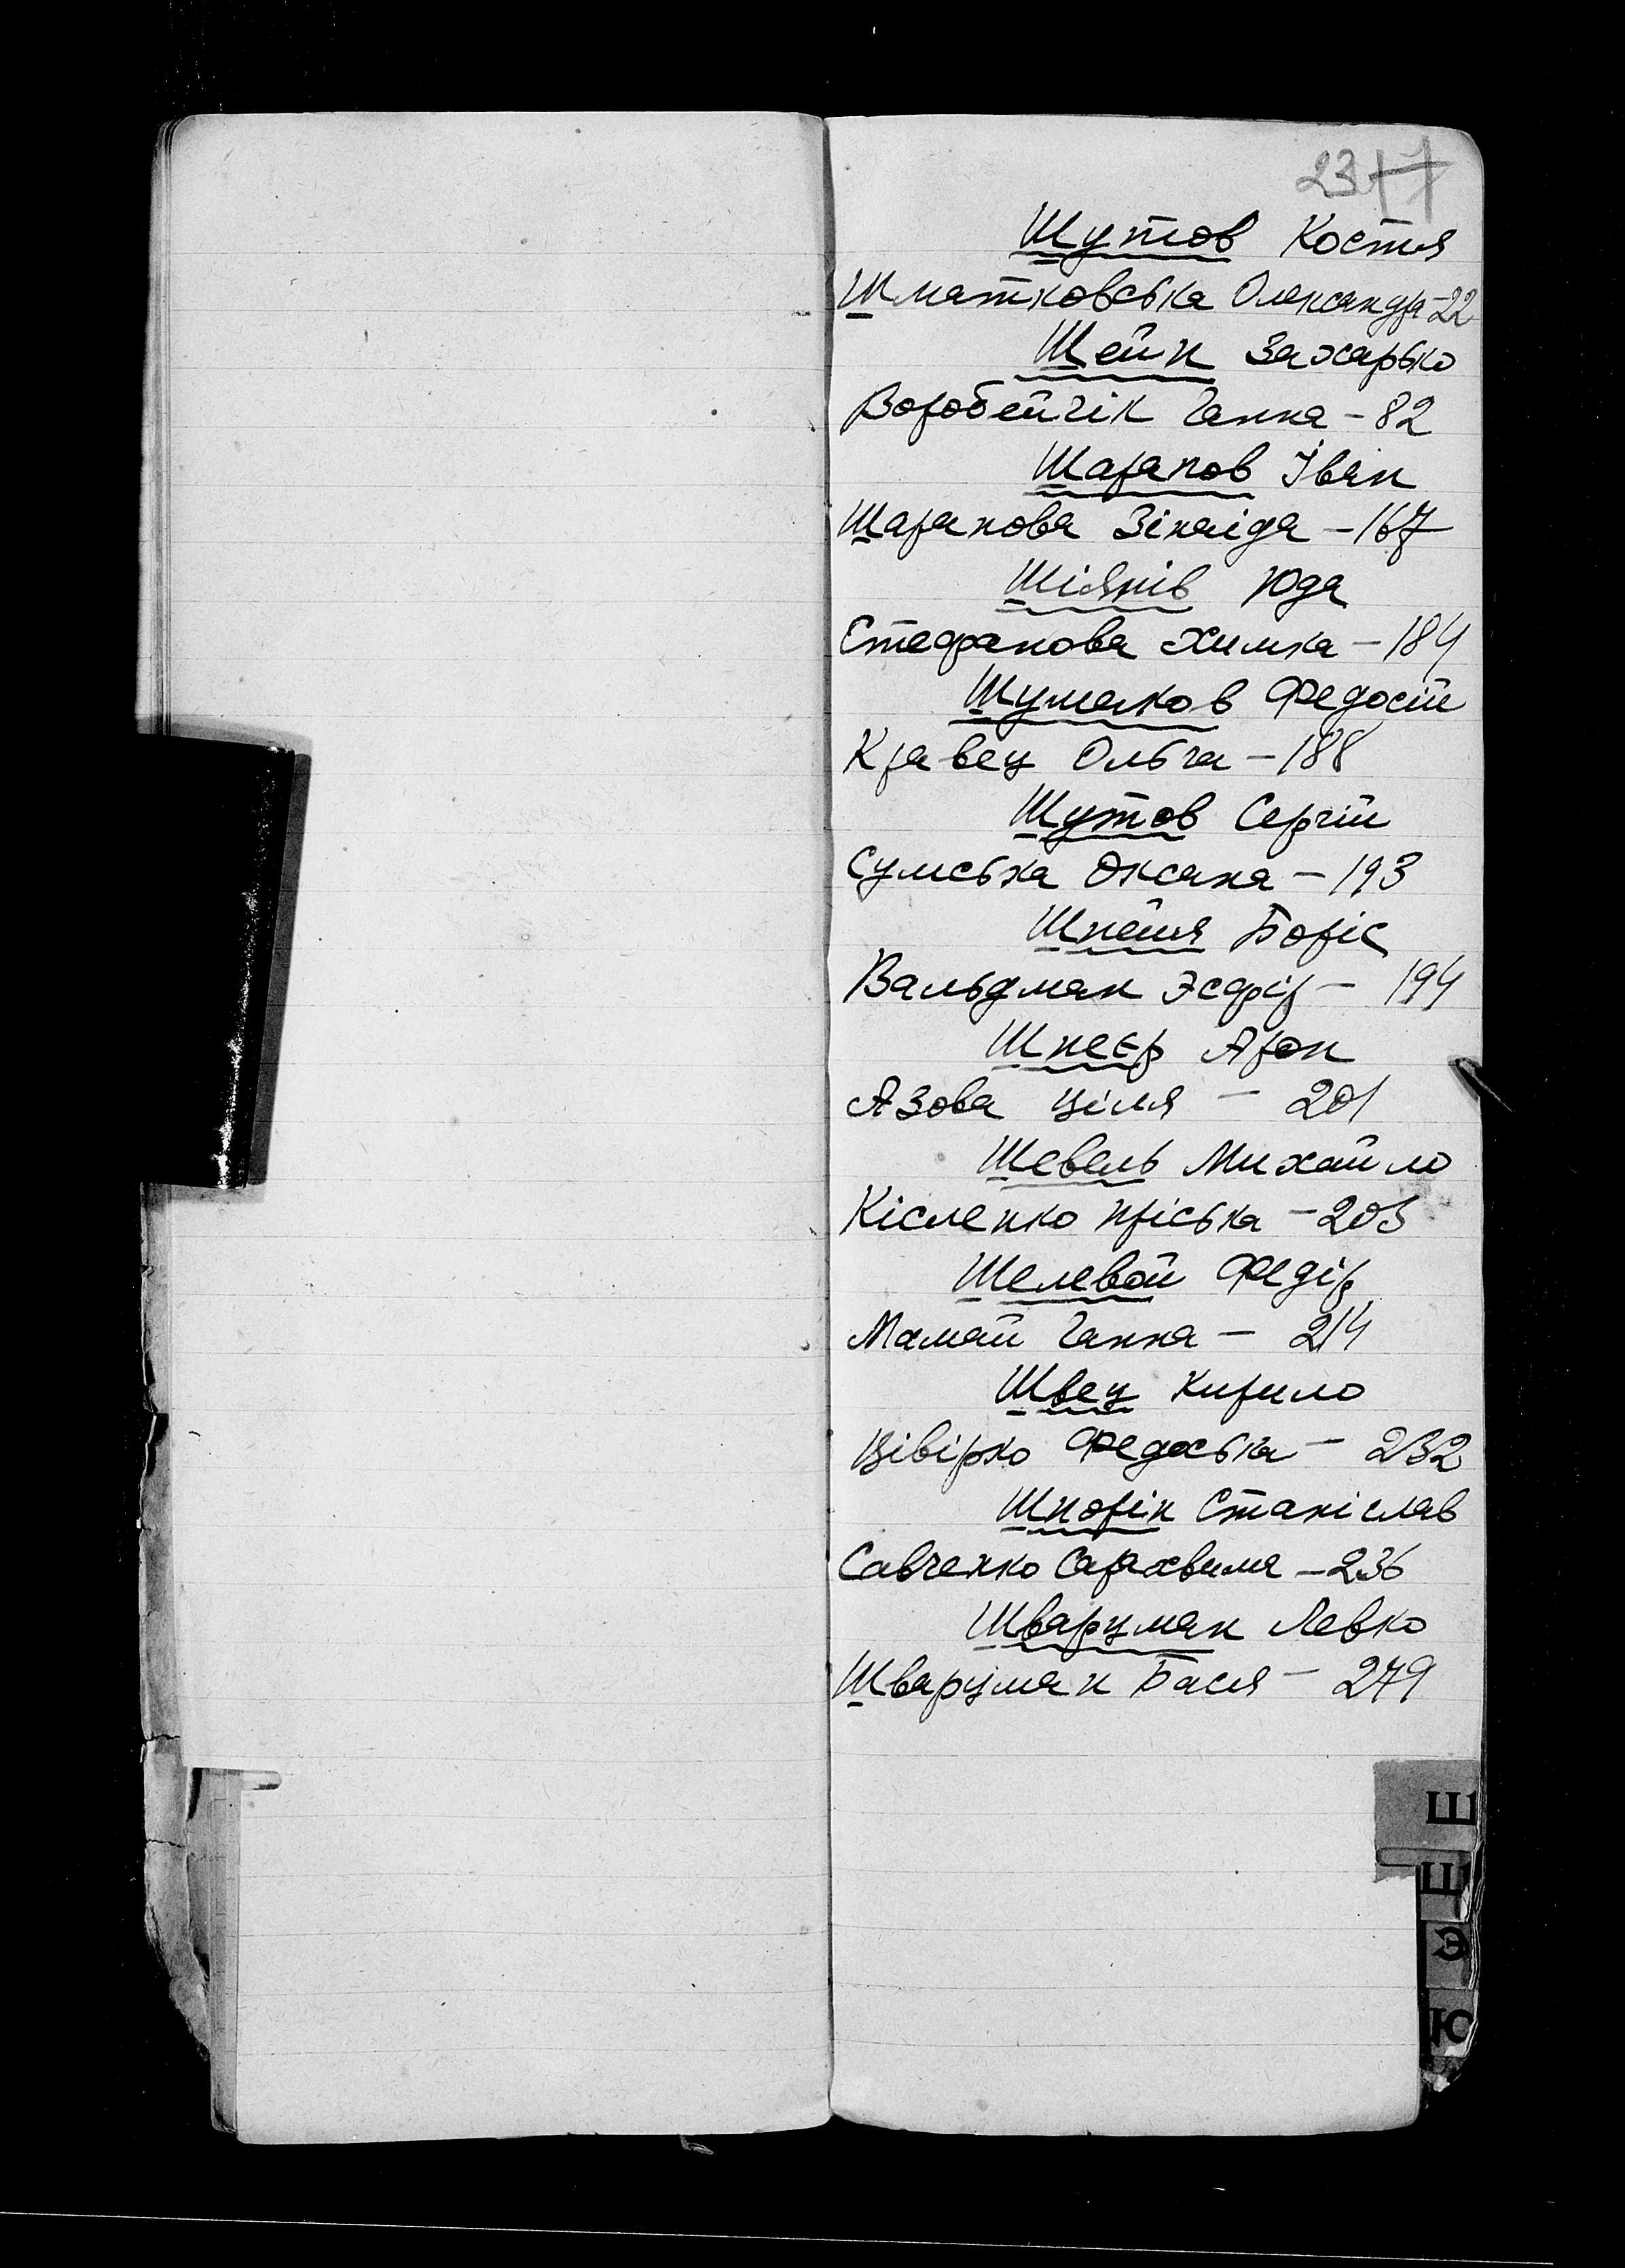 23
Шутов Костя
Шматковська Олександра - 22
Шейн Захарько
Воробейчік Ганна - 82
Шарапов Іван
Шарапова Зінаіда - 167
Шіянів Юда
Стефанова Химка - 184
Шумаков Федосій
Кравец Ольга - 188
Шутов Сергій
Сумська Оксана - 193
Борис
Вальдман Эсфір - 194
Шнеєр Арон
Азова Ціля - 201
Шевель Михайло
Кісленко Пріська - 203
Шелевой Федір
Мамай Ганна - 214
Швец Кирило
Цівірко Федоська - 232
Шпорін Станіслав
Савченко Сарахвима - 236
Шварцман Левко
Шварцман Бася - 279
Ш
Щ
Э
Ю